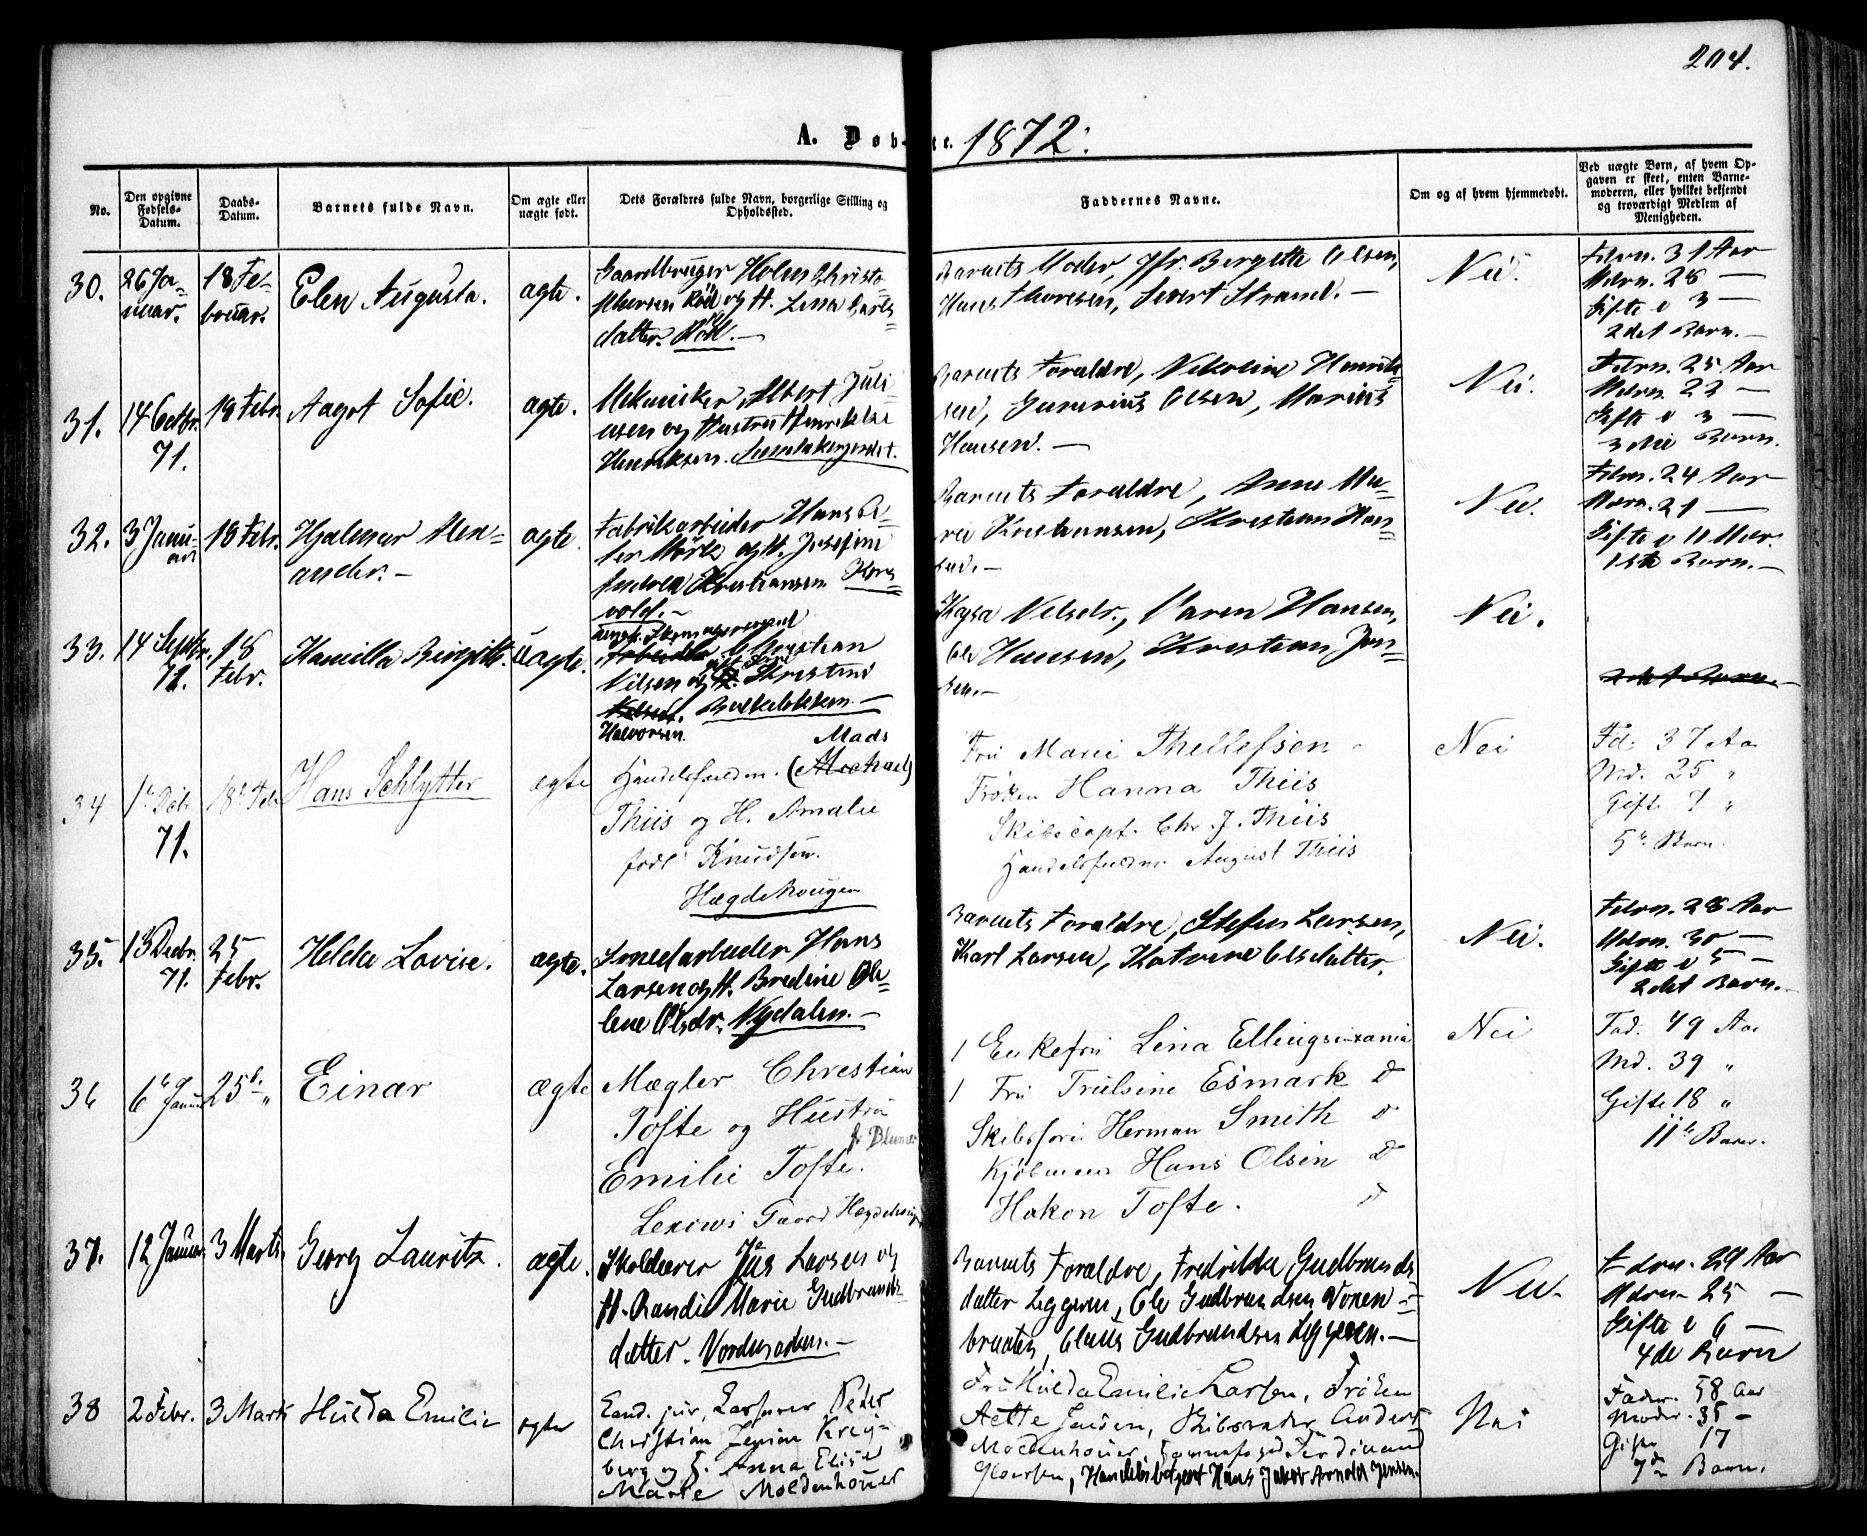 204.
A. Døb-te. 1872.
No.
Den opgivne Fødsels-Datum.
Daabs-Datum.
Barnets fulde Navn.
Om ægte eller uægte født.
Dets Forældres fulde Navn, borgerlige Stilling og Opholdssted.
Faddernes Navne.
Om og af hvem hjemmedøbt.
Ved uægte Børn, af hvem Opgaven er skeet, enten Barnemoderen, eller hvilket bekjendt og troværdigt Medlem af Menigheden.
30. 26 Januar. 18 Februar. Elen Augusta. ægte.
Gaardbruger Holm Christo-
phersen Röd og H. Lena Carls-
datter. Röd. —
Barnets Moder, Jfr. Bergette Olsen,
Hans Thoresen, Sivert Strand. —
Nei.
Fdrn. 31 Aar
Mdrn. 28 —
Gifte i 3 —
2det Barn. —
31. 14 Octbr. 71. 18 Febr. Aagot Sofie. ægte.
Mekaniker Albert Juli
usen og Hustru Henrikke
Henriksen.
Barnets Forældre, Nikoline Henrik-
sen, Gunerius Olsen, Marius
Hansen. —
Nei.
Fdrn. 25 Aar
Mdrn. 22 —
Gifte i 3 —
3die Barn.
32. 3 Januar 18 Febr. Hjalmar Alex-
ander. — ægte.
Fabrikarbeider Hans Pe-
ter Mörk og H. Josefine
Andrea Kristiansen Kors-
vold. —
Barnets Forældre, Anne Ma-
rie Kristiansen, Kristian Han-
sen. —
Nei.
Fdrn. 24 Aar
Mdrn. 21 —
Gifte i 11 Mdr.
1ste Barn. —
33. 14 Septbr. 71. 18 Febr. Kamilla Birgitte. Uægte.
Ungk. Skomagersvend
Arbeider Christian
Nilsen og Kristine
Nilsen. Bolteløkken. —
Halvorsen.
Kaja Nilsdr., Maren Hansen,
Ole Hansen, Kristian Jen-
sen. —
Nei.
2det Barn. —
34 1de Dcbr 71. 18de Feb Hans Schlytter ægte
Mads
Handelsfuldm. (Michael)
Thiis og H. Amalie
født Knudsen.
Hægdehougen
Fru Marie Thellefsen
Frøken Hanna Thiis
Skibscapt. Chr. J. Thiis
Handelsfuldm. August Thiis
Nei
Fd. 37 Aa
Md. 25 "
Gifte 7 "
5te Barn.
35. 13 Decbr. 71. 25 Febr. Helda Lovise. ægte.
Smedarbeider Hans
Larsen og H. Bredine Ole-
lene Olsdr. Nydalen. —
Barnets Forældre, Stefen Larsen,
Karl Larsen, Katrine Olsdatter.
Nei.
Fdrn. 28 Aar
Mdrn. 30 —
Gifte i 5 —
2det Barn. —
36 6te Januar 25de " Einar ægte
Mægler Christian
Tofte og Hustru
f. Blumer
Emilie Tofte.
Lexows Gaard Hægdehoug
1 Enkefru Lina Ellingsen
1 Fru Trulsine Esmark D
Skibsfører Herman Smith D
Kjøbmand Hans Olsen D
Hakon Tofte. D
Nei
Fad. 49 Aa
Md. 39 "
Gifte 18 "
11te Barn.
37. 12 Januar 3 Marts. Georg Lauritz. ægte.
Skolelærer Jens Larsen og
H. Randi Marie Gudbrands-
datter.
Barnets Forældre, Fredrikke Gudbrands
datter Leggeren, Ole Gudbrandsen Voxen-
braaten, Claus Gudbrandsen Leggeren. —
Nei.
Fdrn. 29 Aar
Mdrn. 25 —
Gifte i 6 —
4de Barn
38 2 Febr. 3 Marts Hulda Emilie ægte
Cand. jur, Kasserer Peter
Christian Jensen Kreg-
berg og H. Anna Elise
Marie Moldenhauer
Fru Hulda Emilie Larsen, Frøken
Aette Jensen, Skibsreder Anders
Moldenhauer, Ferdinand
Gløersen, Handelsbetjent Hans Jakob Arnold Jensen.
Nei
Fader. 58 Aar
Moder. 35 —
Gifte 17
7de Barn.